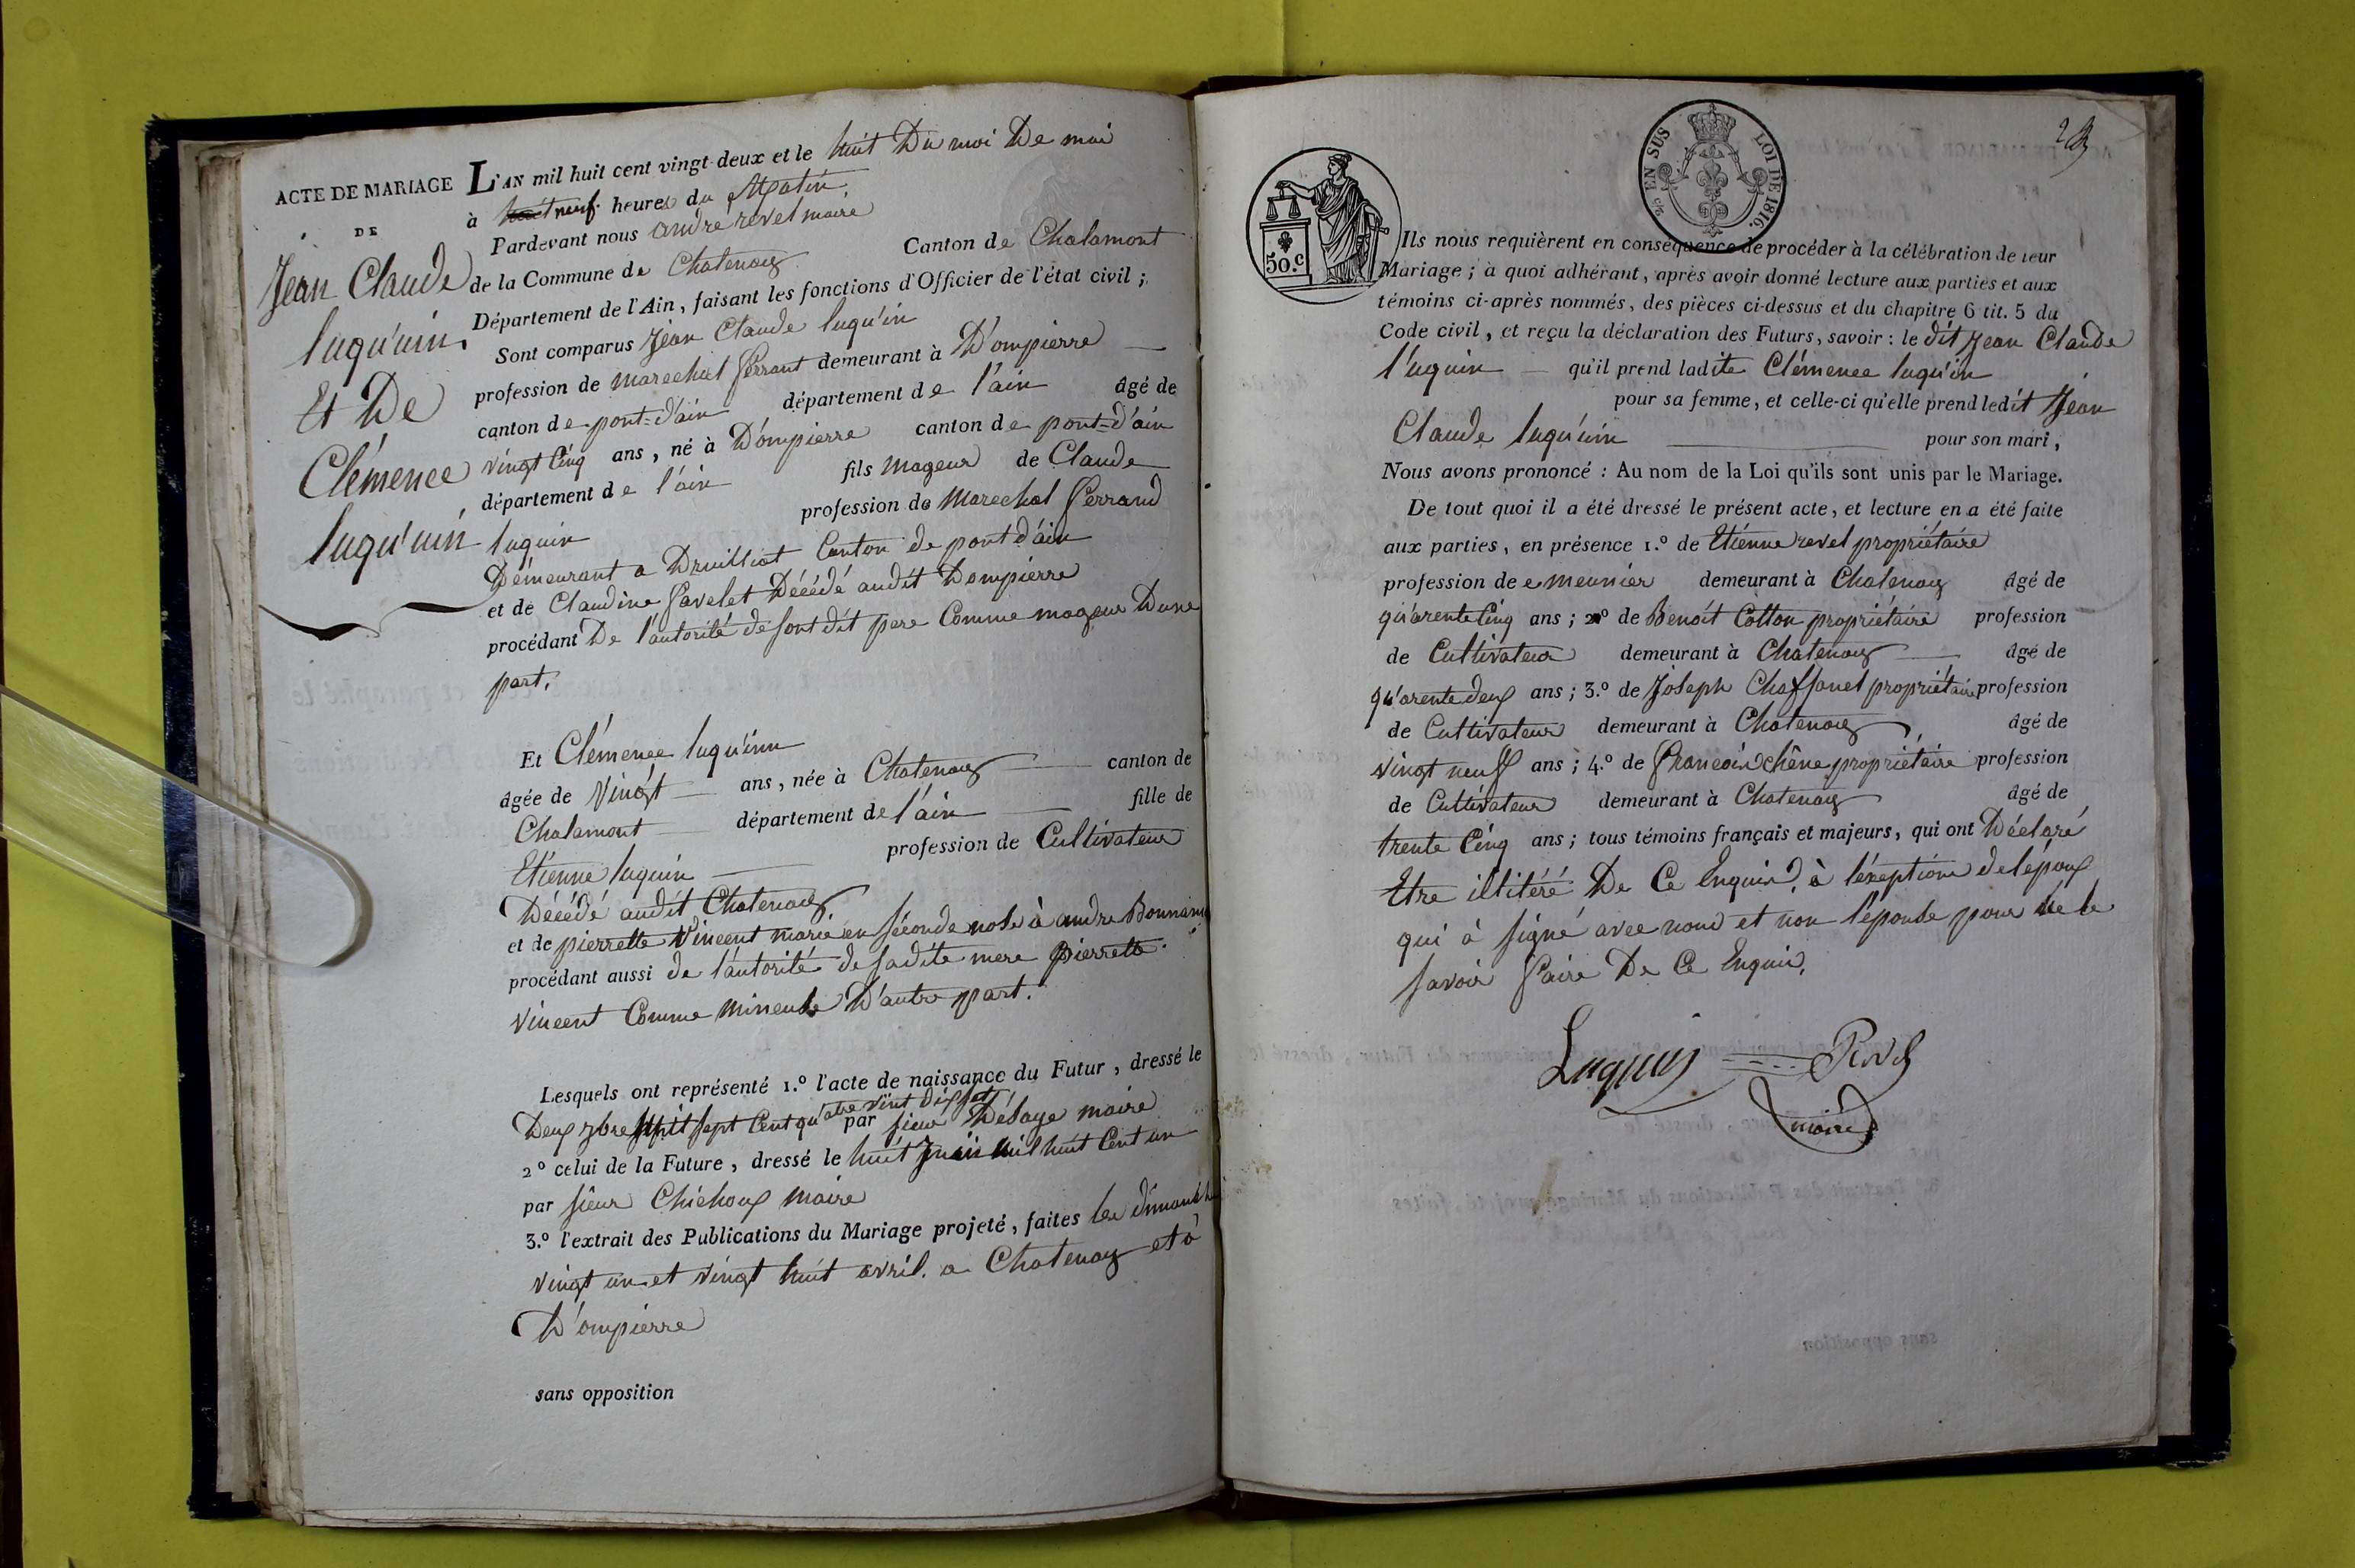 ACTE DE MARIAGE
DE
Jean Claude
luqu'uin.
Et De
Clémence
luqu'uin
L'AN mil huit cent vingt-deux et le huit Du moi De mai
à neuf heures du Matin.
Pardevant nous andré revel maire
de la Commune de Chatenay Canton de Chalamont
Département de l'Ain, faisant les fonctions d'Officier de l'état civil ;
Sont comparus Jean Claude luqu'in
profession de marechal ferrant demeurant à D'ompierre
canton de pont-d'ain département de l'ain âgé de
vingt Cinq ans, né à D'ompierre canton de pont-d'ain
département de l'ain fils mageur de Claude
luquin profession de Marechal ferrand
Démeurant a Druilliat Canton de pont d'ain
et de Claudine favelet Décédé audit Dompierre
procédant De l'autorité de sont dit pere Comme mageur Dune
part.
Et Clémence luqu'inn
âgée de Vingt ans, née à Chatenay canton de
Chalamont département de l'ain fille de
Etienne luquin profession de Cultivateur
Décédé audit Chatenay
et de pierrette Vincent marié en séconde nose à andre Bonnamy
procédant aussi de l'autorité de sadite mere pierrette
Vincent Comme mineure D'autre part.
Lesquels ont représenté 1.º l'acte de naissance du Futur, dressé le
Deux 7bre Mil sept Cent qu'atre vint dix set
par sieur Désage maire
2º celui de la Future, dressé le huit Juin mil huit Cent un
par sieur Chichoux maire
3.º l'extrait des Publications du Mariage projeté, faites les dimanche
vingt un et vingt huit avril. a Chatenay et à
D'ompierre
sans opposition
EN SUS
LOI DE 1816.
50.c
Ils nous requièrent en conséquence de procéder à la célébration de leur
Mariage ; à quoi adhérant, après avoir donné lecture aux parties et aux
témoins ci-après nommés, des pièces ci-dessus et du chapitre 6 tit. 5 du
Code civil, et reçu la déclaration des Futurs, savoir : le dit Jean Claude
l'uquin qu'il prend ladite Clémence luqu'in
pour sa femme, et celle-ci qu'elle prend ledit Jean
Claude luqu'uin pour son mari,
Nous avons prononcé : Au nom de la Loi qu'ils sont unis par le Mariage.
De tout quoi il a été dressé le présent acte, et lecture en a été faite
aux parties, en présence 1.º de Etienne revel propriétaire
profession de meunier demeurant à Chatenay âgé de
qu'arente Cinq ans ; 2º de Benoit Cotton propriétaire profession
de Cultivateur demeurant à Chatenay âgé de
qu'arente deux ans ; 3.º de Joseph Chaffanel propriétaire profession
de Cultivateur demeurant à Chatenay, âgé de
vingt neuf ans ; 4.º de francois chêne propriétaire profession
de Cultivateur demeurant à Chatenay âgé de
trente Cinq ans ; tous témoins français et majeurs, qui ont Déclaré
Etre illitéré De Ce Enquis, à l'éxeption de lépoux
qui à signé avec nous et non l'épouse pour ne le
savoir faire De Ce Enquis.
Luquin Revel
maire